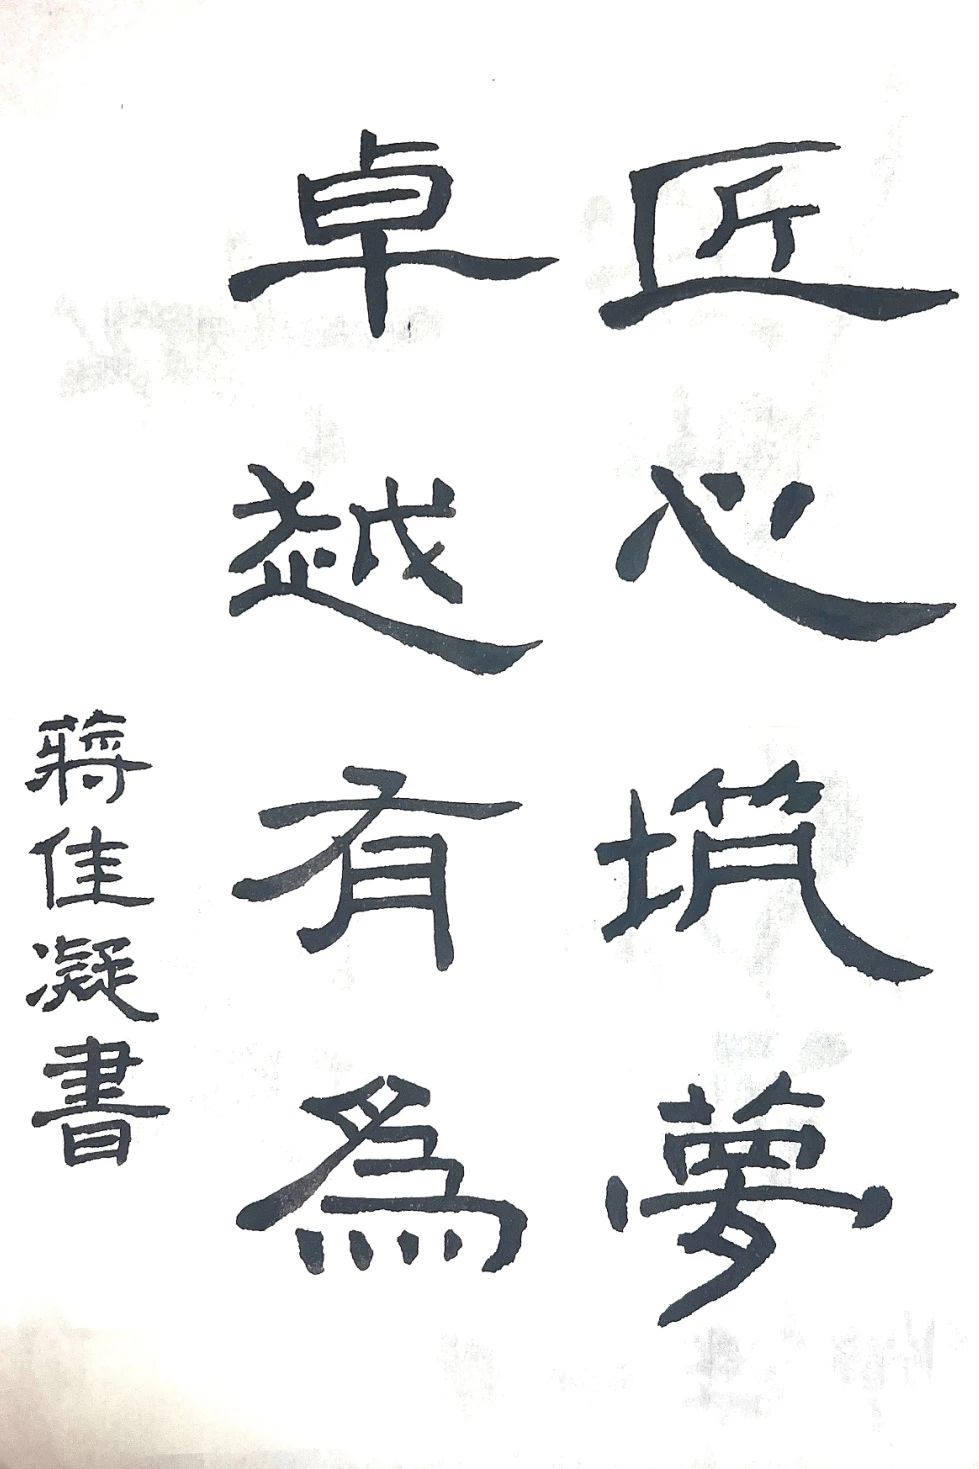 匠心筑夢
卓越有為
蔣佳凝書